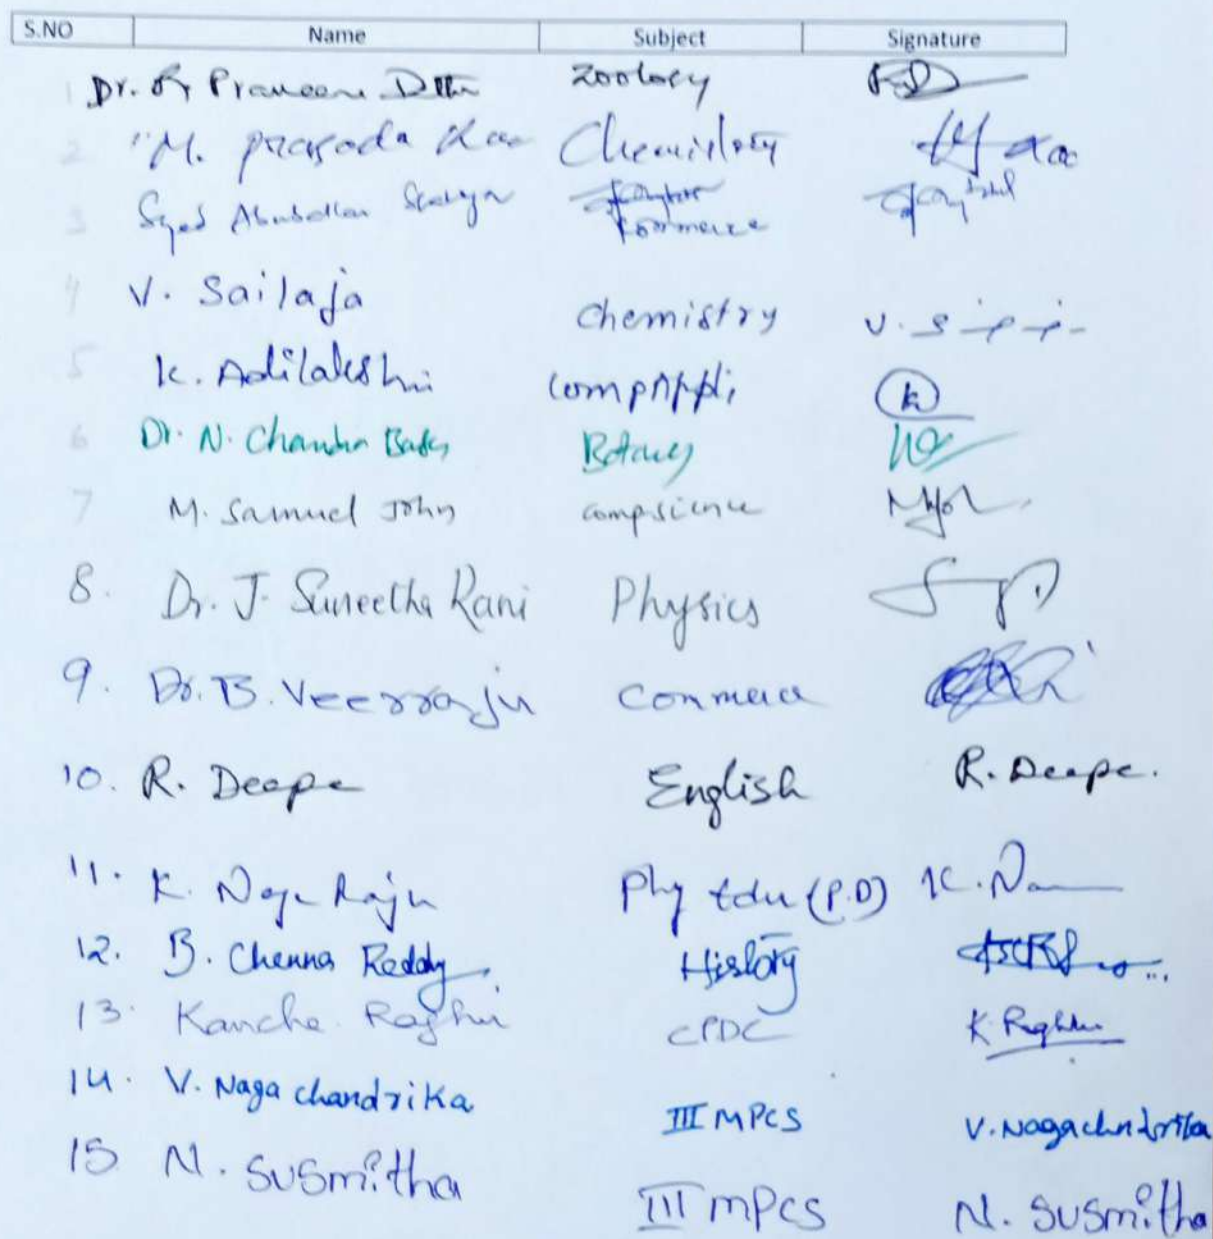 S.NO Name Subject Signature
1 Dr. Praveen Zoology
2 M. Prasada Rao Chemistry Rao
3 Syed Commerce
4 V. Sailaja Chemistry V. S
5 K. Adilakshmi CompAppli K
6 Dr. N. Chandra Botany
7 M. Samuel John compscience
8. Dr. J. Suneetha Rani Physics
9. Dr. B. Veerraju Commerce
10. R. Deepa English R. Deepa.
11. K. Naga Raju Phy Edu (P.D) K. Na
12. B. Chenna Reddy History
13. Kanche Raghu CPDC K. Raghu
14. V. Naga chandrika III MPCS V. Nagachndrika
15 N. SUSmitha III mPCS N. SUSmitha